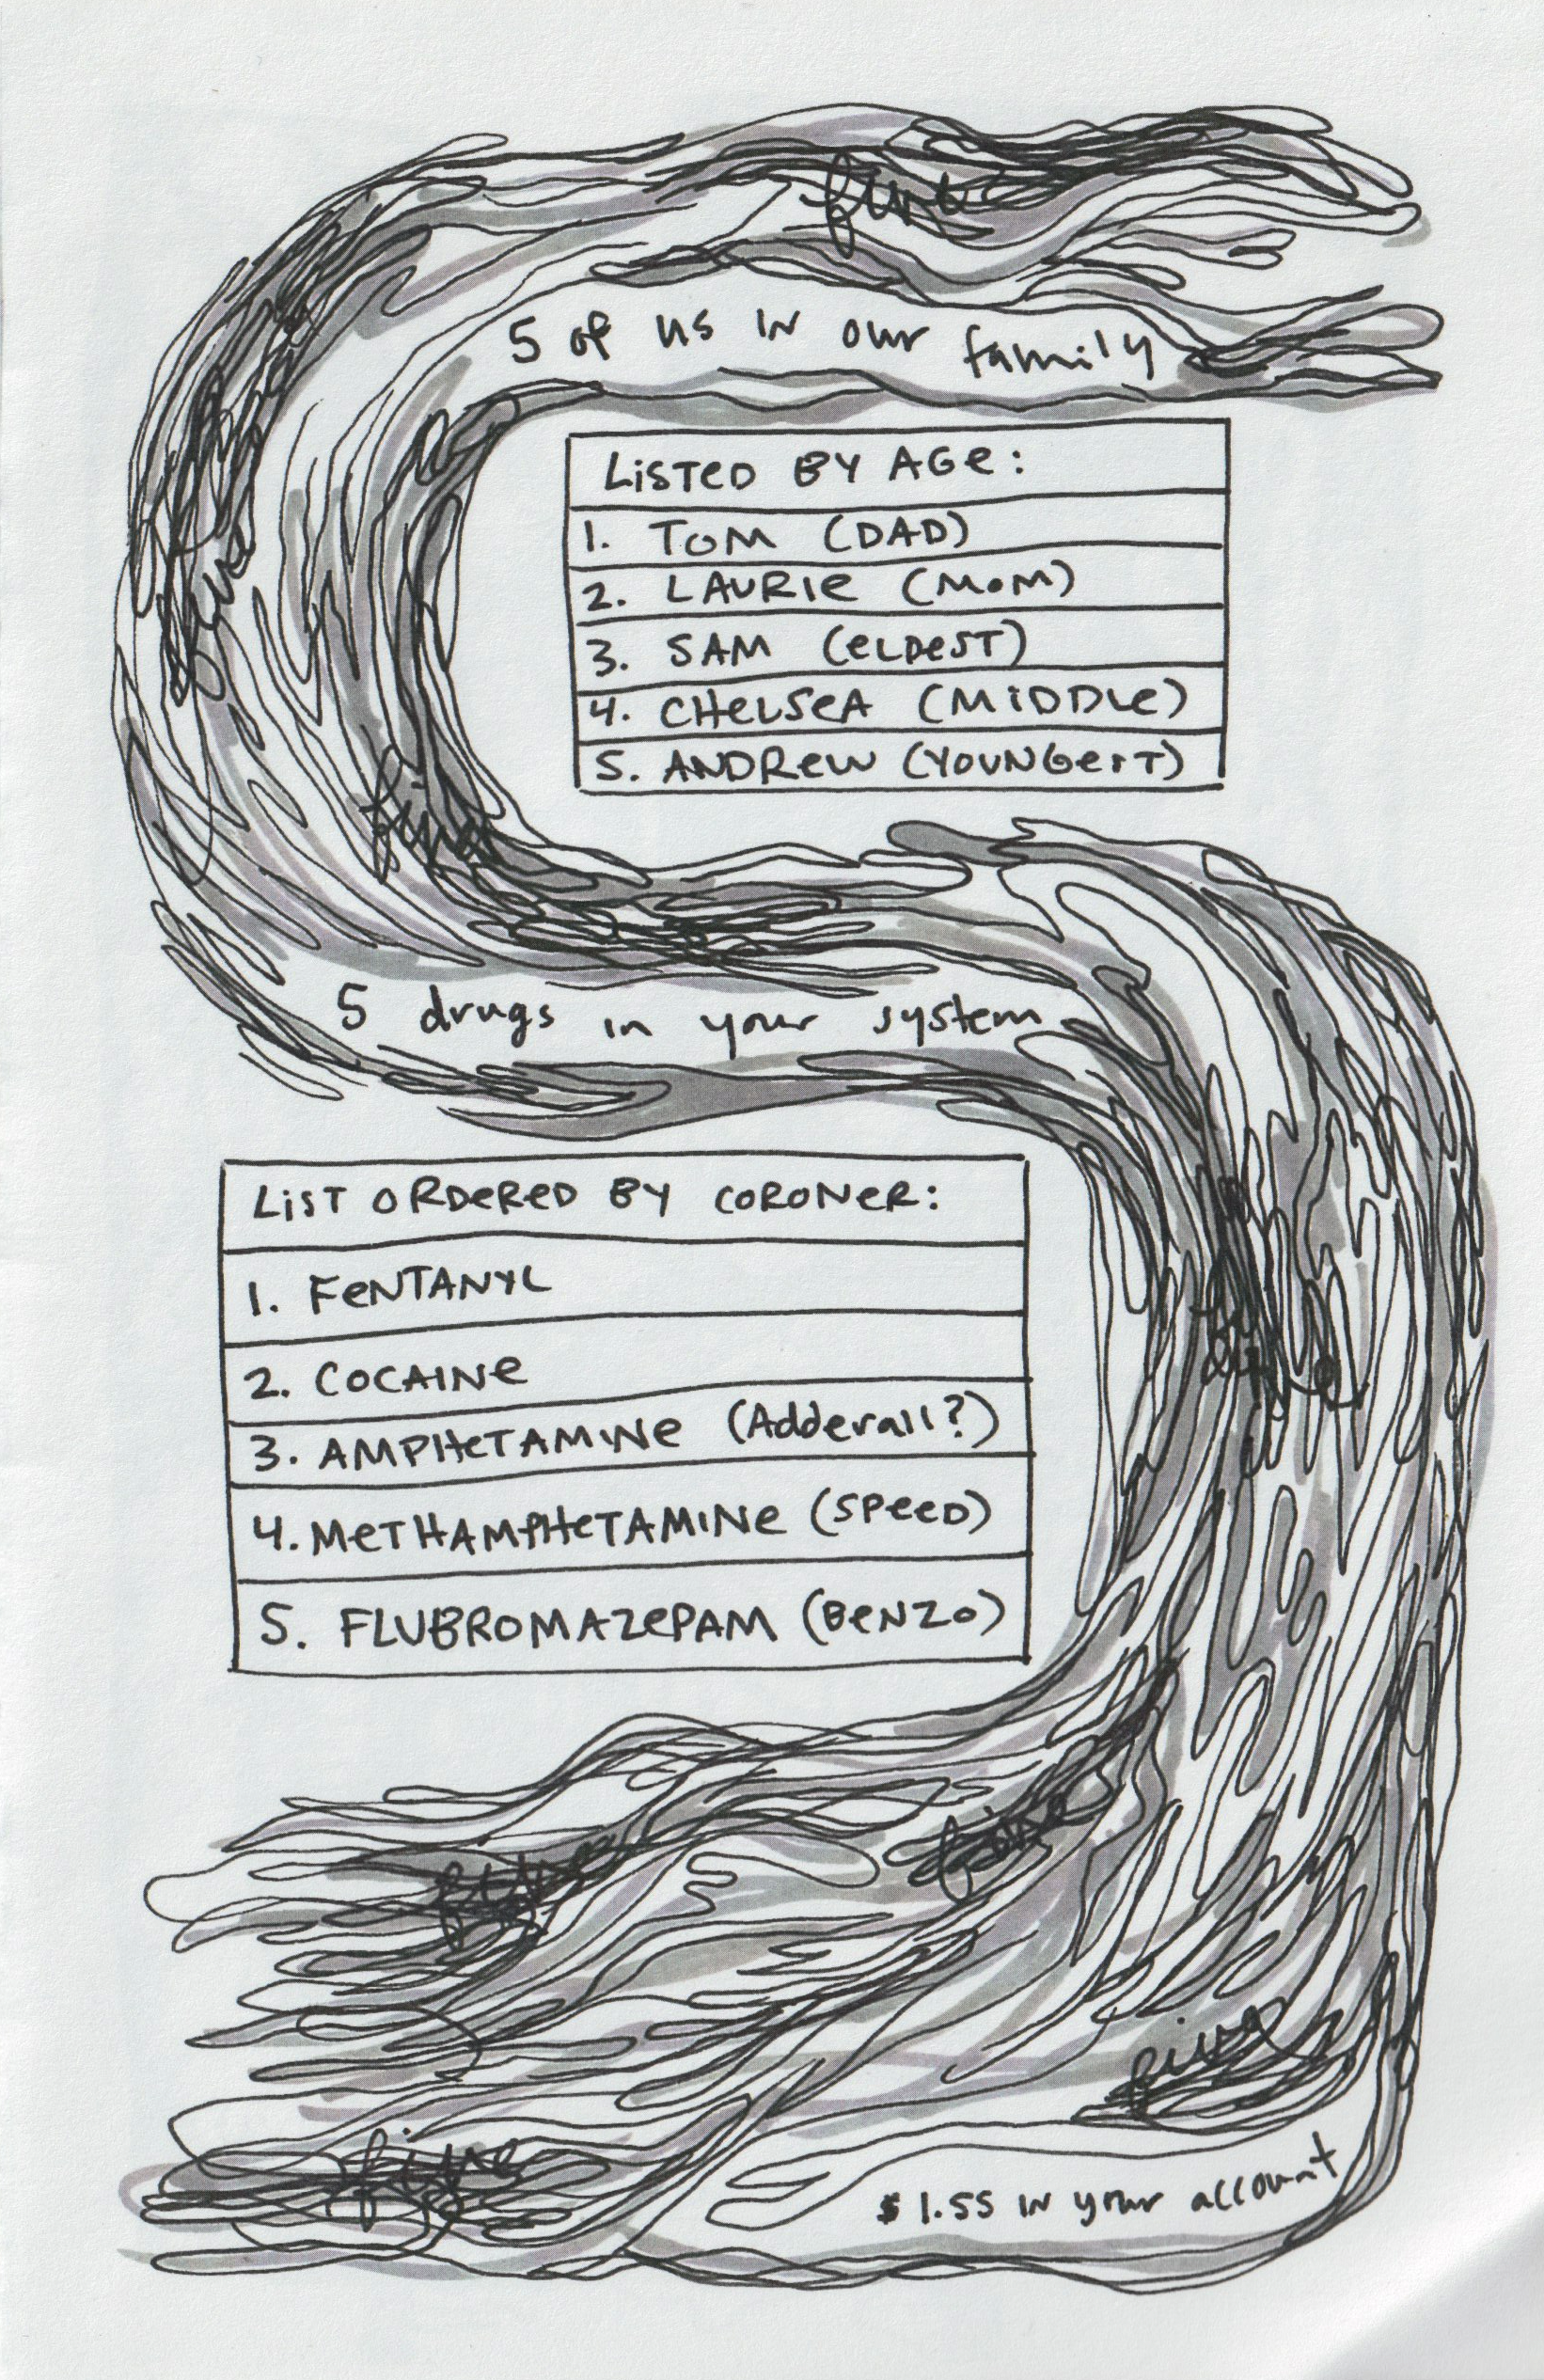 5 of us in our family
LISTED BY AGE:
1. TOM (DAD)
2. LAURIE (MOM)
3. SAM (ELDEST)
4. CHELSEA (MIDDLE)
5. ANDREW (YOUNGEST)
5 drugs in your system
LIST ORDERED BY CORONER:
1. FENTANYL
2. COCAINE
3. AMPHETAMINE (Adderall?)
4. METHAMPHETAMINE (SPEED)
5. FLUBROMAZEPAM (BENZO)
$1.55 in your account